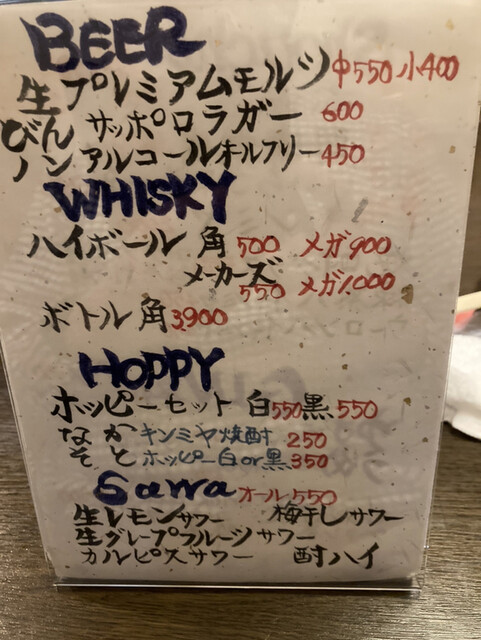 BEER
生 プレミアムモルツ 中550 小400
びん サッポロラガー 600
ノンアルコール オールフリー 450
WHISKY
ハイボール 角 500 メガ900
メーカーズ 550 メガ1,000
ボトル 角 3,900
HOPPY
ホッピーセット 白550 黒 550
なか キンミヤ焼酎 250
そと ホッピー白or黒 350
Sawa オール550
生レモンサワー 梅干しサワー
生グレープフルーツサワー
カルピスサワー 酎ハイ